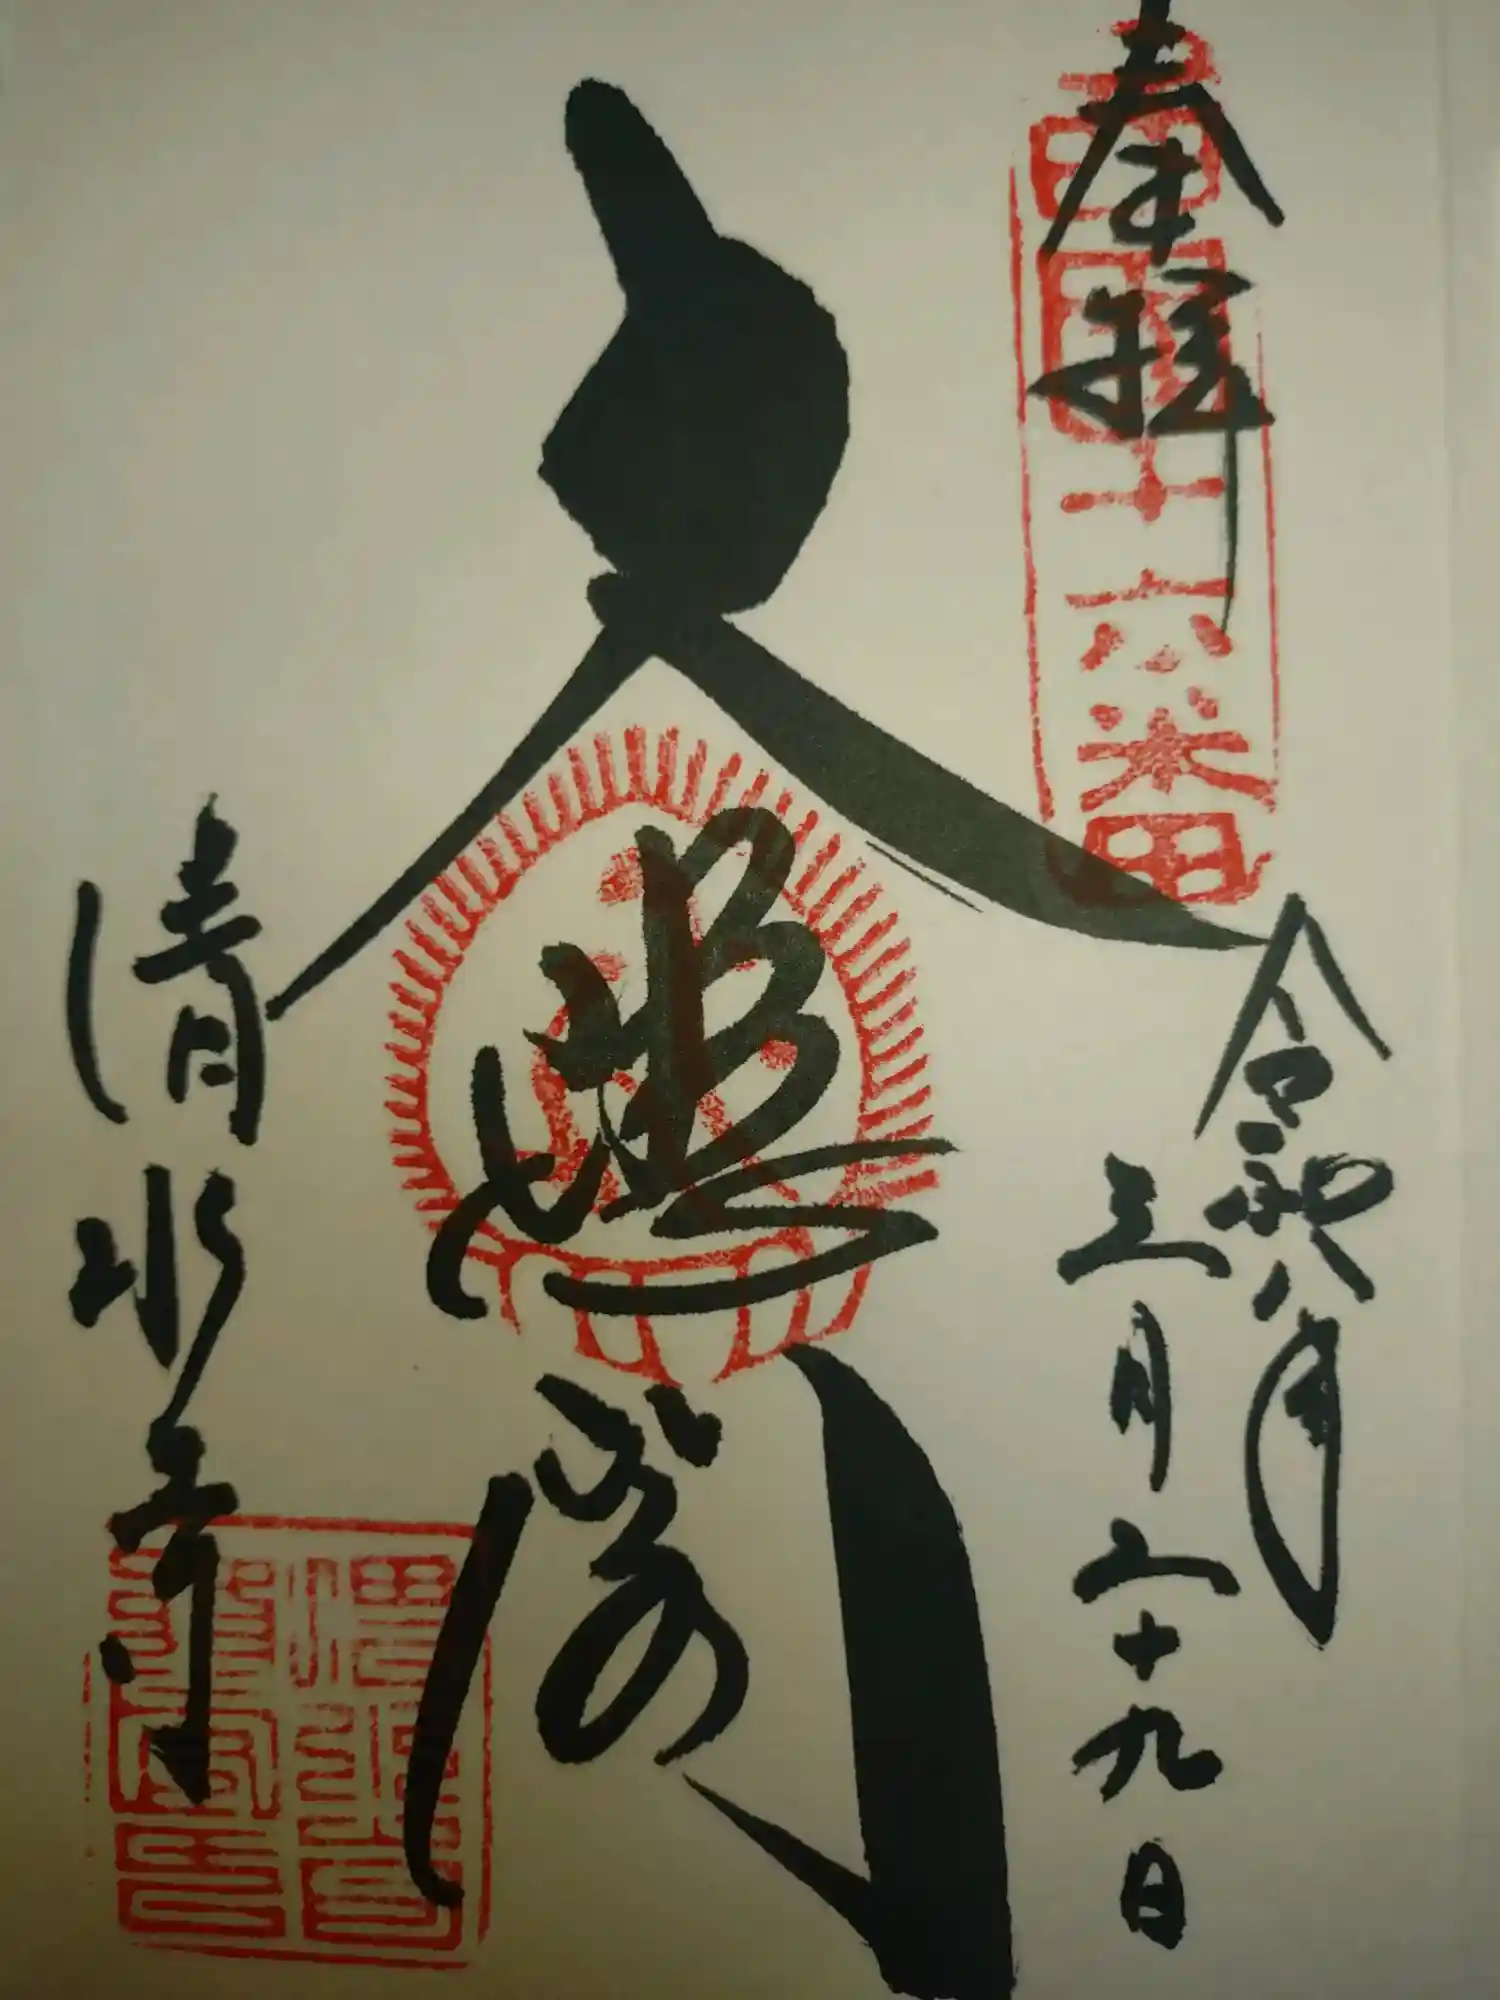 奉拝
西国十六番
令和八年
三月二十九日
大悲閣
清水寺